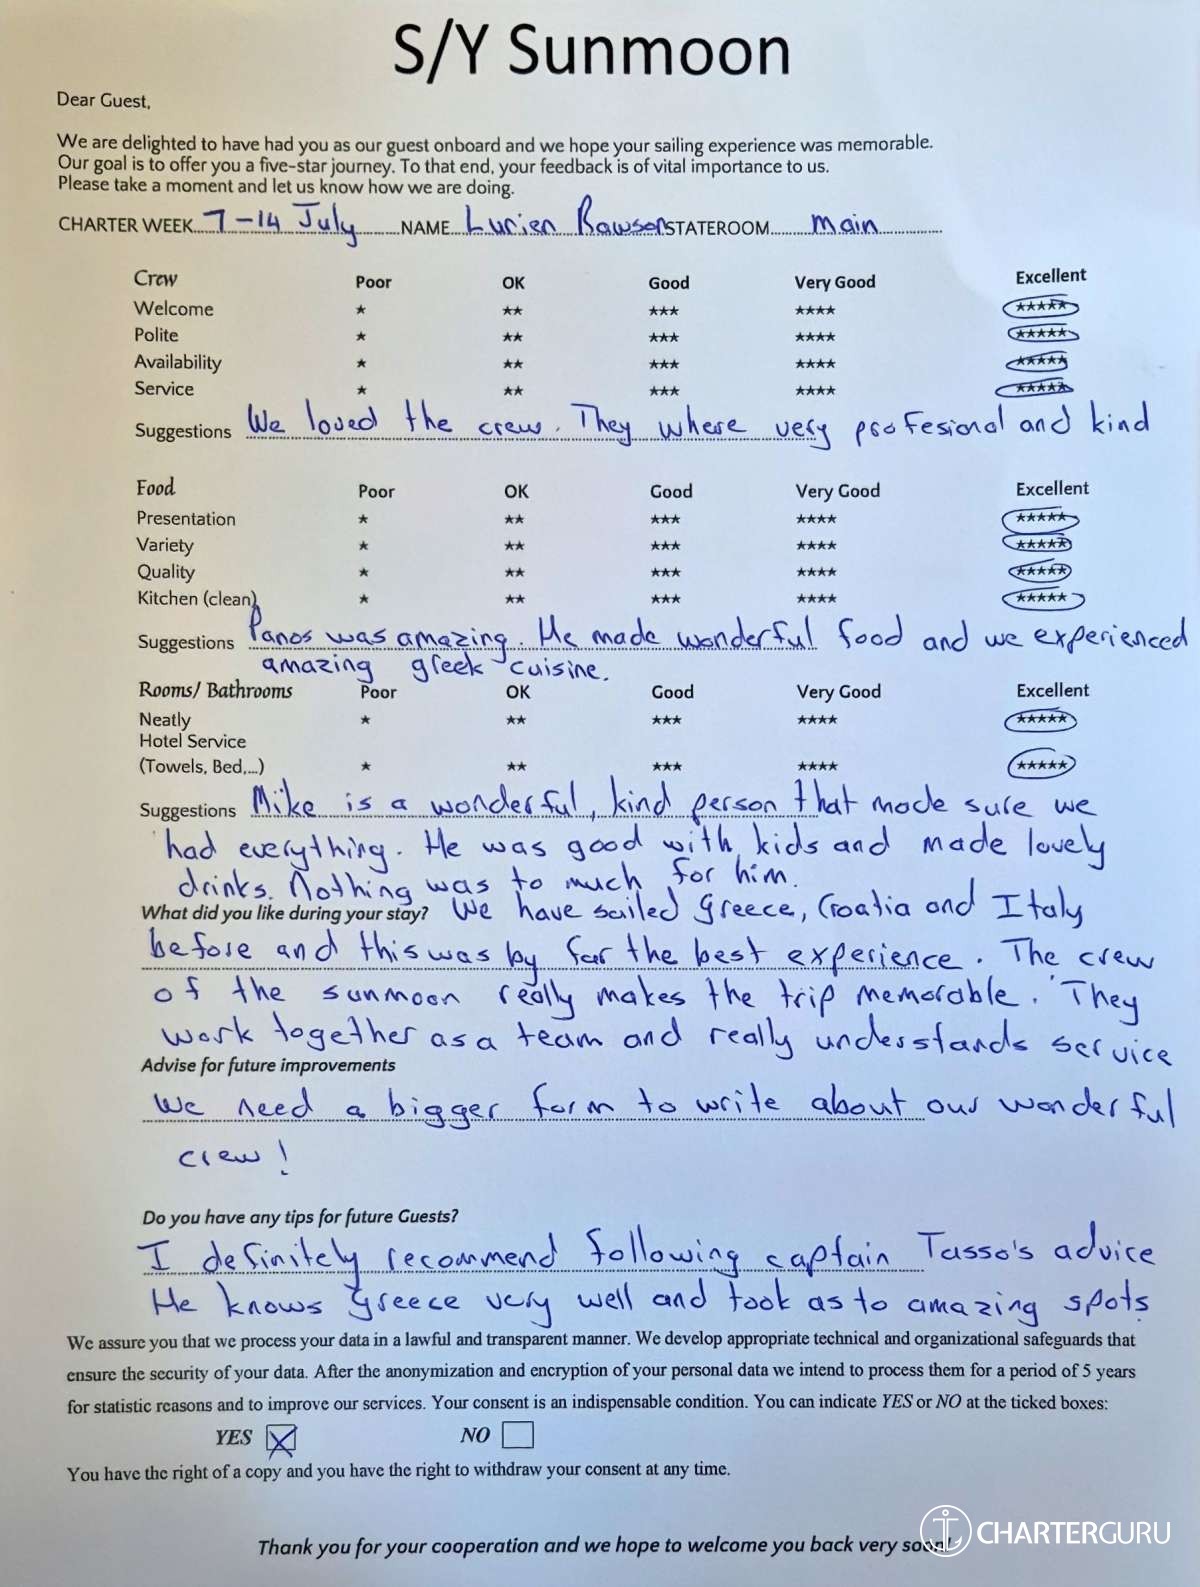 S/Y Sunmoon
Dear Guest,
We are delighted to have had you as our guest onboard and we hope your sailing experience was memorable.
Our goal is to offer you a five-star journey. To that end, your feedback is of vital importance to us.
Please take a moment and let us know how we are doing.
CHARTER WEEK 7-14 July NAME Lurien Rawson STATEROOM main
Crew Poor OK Good Very Good Excellent
Welcome ★ ★★ ★★★ ★★★★ ★★★★★
Polite ★ ★★ ★★★ ★★★★ ★★★★★
Availability ★ ★★ ★★★ ★★★★ ★★★★★
Service ★ ★★ ★★★ ★★★★ ★★★★★
Suggestions We loved the crew. They where very profesional and kind
Food Poor OK Good Very Good Excellent
Presentation ★ ★★ ★★★ ★★★★ ★★★★★
Variety ★ ★★ ★★★ ★★★★ ★★★★★
Quality ★ ★★ ★★★ ★★★★ ★★★★★
Kitchen (clean) ★ ★★ ★★★ ★★★★ ★★★★★
Suggestions Panos was amazing. He made wonderful food and we experienced
amazing greek cuisine.
Rooms/ Bathrooms Poor OK Good Very Good Excellent
Neatly ★ ★★ ★★★ ★★★★ ★★★★★
Hotel Service
(Towels, Bed,...) ★ ★★ ★★★ ★★★★ ★★★★★
Suggestions Mike is a wonderful, kind person that made sure we
had everything. He was good with kids and made lovely
drinks. Nothing was to much for him.
What did you like during your stay? We have sailed Greece, Croatia and Italy
before and this was by far the best experience. The crew
of the sunmoon really makes the trip memorable. They
work together as a team and really understands service
Advise for future improvements
We need a bigger form to write about our wonderful
crew!
Do you have any tips for future Guests?
I definitely recommend following captain Tasso's advice
He knows Greece very well and took as to amazing spots
We assure you that we process your data in a lawful and transparent manner. We develop appropriate technical and organizational safeguards that
ensure the security of your data. After the anonymization and encryption of your personal data we intend to process them for a period of 5 years
for statistic reasons and to improve our services. Your consent is an indispensable condition. You can indicate YES or NO at the ticked boxes:
YES NO
You have the right of a copy and you have the right to withdraw your consent at any time.
Thank you for your cooperation and we hope to welcome you back very soon!
CHARTERGURU